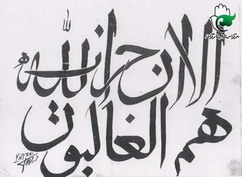 الا ان حزب الله
هم الغالبون